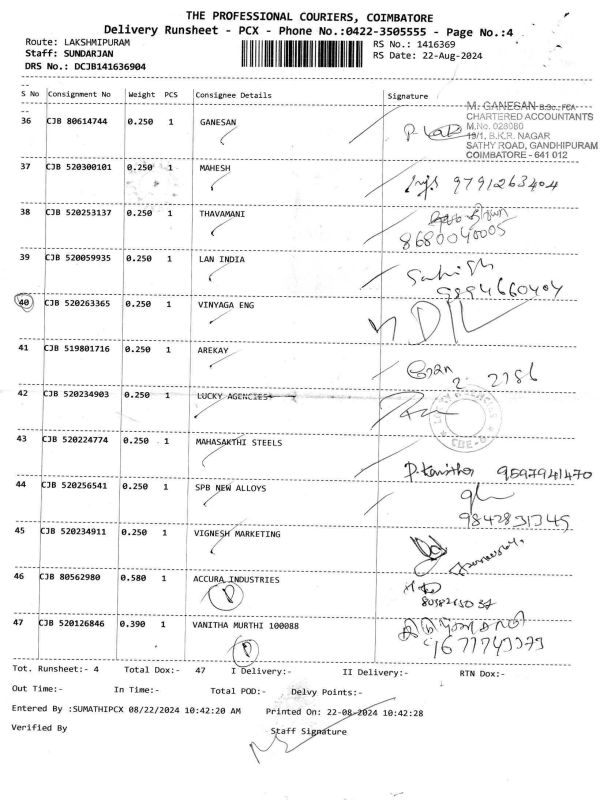 THE PROFESSIONAL COURIERS, COIMBATORE
Delivery Runsheet - PCX - Phone No.:0422-3505555 - Page No.:4
Route: LAKSHMIPURAM RS No.: 1416369
Staff: SUNDARJAN RS Date: 22-Aug-2024
DRS No.: DCJB141636904
S No Consignment No Weight PCS Consignee Details Signature
M. GANESAN B.Sc., FCA
CHARTERED ACCOUNTANTS
36 CJB 80614744 0.250 1 GANESAN M.No. 028080
19/1, B.K.R. NAGAR
SATHY ROAD, GANDHIPURAM
COIMBATORE - 641 012
37 CJB 520300101 0.250 1 MAHESH 9791263404
38 CJB 520253137 0.250 1 THAVAMANI
8680040005
39 CJB 520059935 0.250 1 LAN INDIA Sathish
9894660404
40 CJB 520263365 0.250 1 VINYAGA ENG
41 CJB 519801716 0.250 1 AREKAY
2186
42 CJB 520234903 0.250 1 LUCKY AGENCIES
LUCKY AGENCIES
43 CJB 520224774 0.250 1 MAHASAKTHI STEELS
P. Kavitha 9597941470
44 CJB 520256541 0.250 1 SPB NEW ALLOYS
9842831345
45 CJB 520234911 0.250 1 VIGNESH MARKETING
46 CJB 80562980 0.580 1 ACCURA INDUSTRIES
47 CJB 520126846 0.390 1 VANITHA MURTHI 100088
Tot. Runsheet:- 4 Total Dox:- 47 I Delivery:- II Delivery:- RTN Dox:-
Out Time:- In Time:- Total POD:- Delvy Points:-
Entered By :SUMATHIPCX 08/22/2024 10:42:20 AM Printed On: 22-08-2024 10:42:28
Verified By Staff Signature